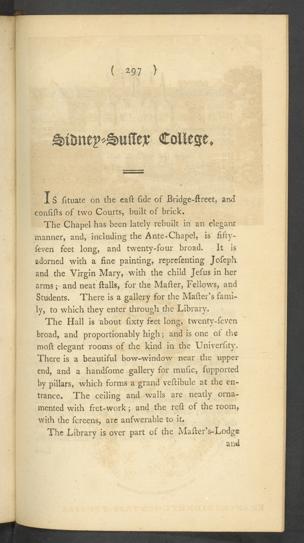 ( 297 )
Sidney-Suſſex College.
IS ſituate on the eaſt ſide of Bridge-ſtreet, and
conſiſts of two Courts, built of brick.
The Chapel has been lately rebuilt in an elegant
manner, and, including the Ante-Chapel, is fifty-
ſeven feet long, and twenty-four broad. It is
adorned with a fine painting, repreſenting Joſeph
and the Virgin Mary, with the child Jeſus in her
arms; and neat ſtalls, for the Maſter, Fellows, and
Students. There is a gallery for the Maſter's fami-
ly, to which they enter through the Library.
The Hall is about ſixty feet long, twenty-ſeven
broad, and proportionably high; and is one of the
moſt elegant rooms of the kind in the Univerſity.
There is a beautiful bow-window near the upper
end, and a handſome gallery for muſic, ſupported
by pillars, which forms a grand veſtibule at the en-
trance. The ceiling and walls are neatly orna-
mented with fret-work; and the reſt of the room,
with the ſcreens, are anſwerable to it.
The Library is over part of the Maſter's-Lodge
and